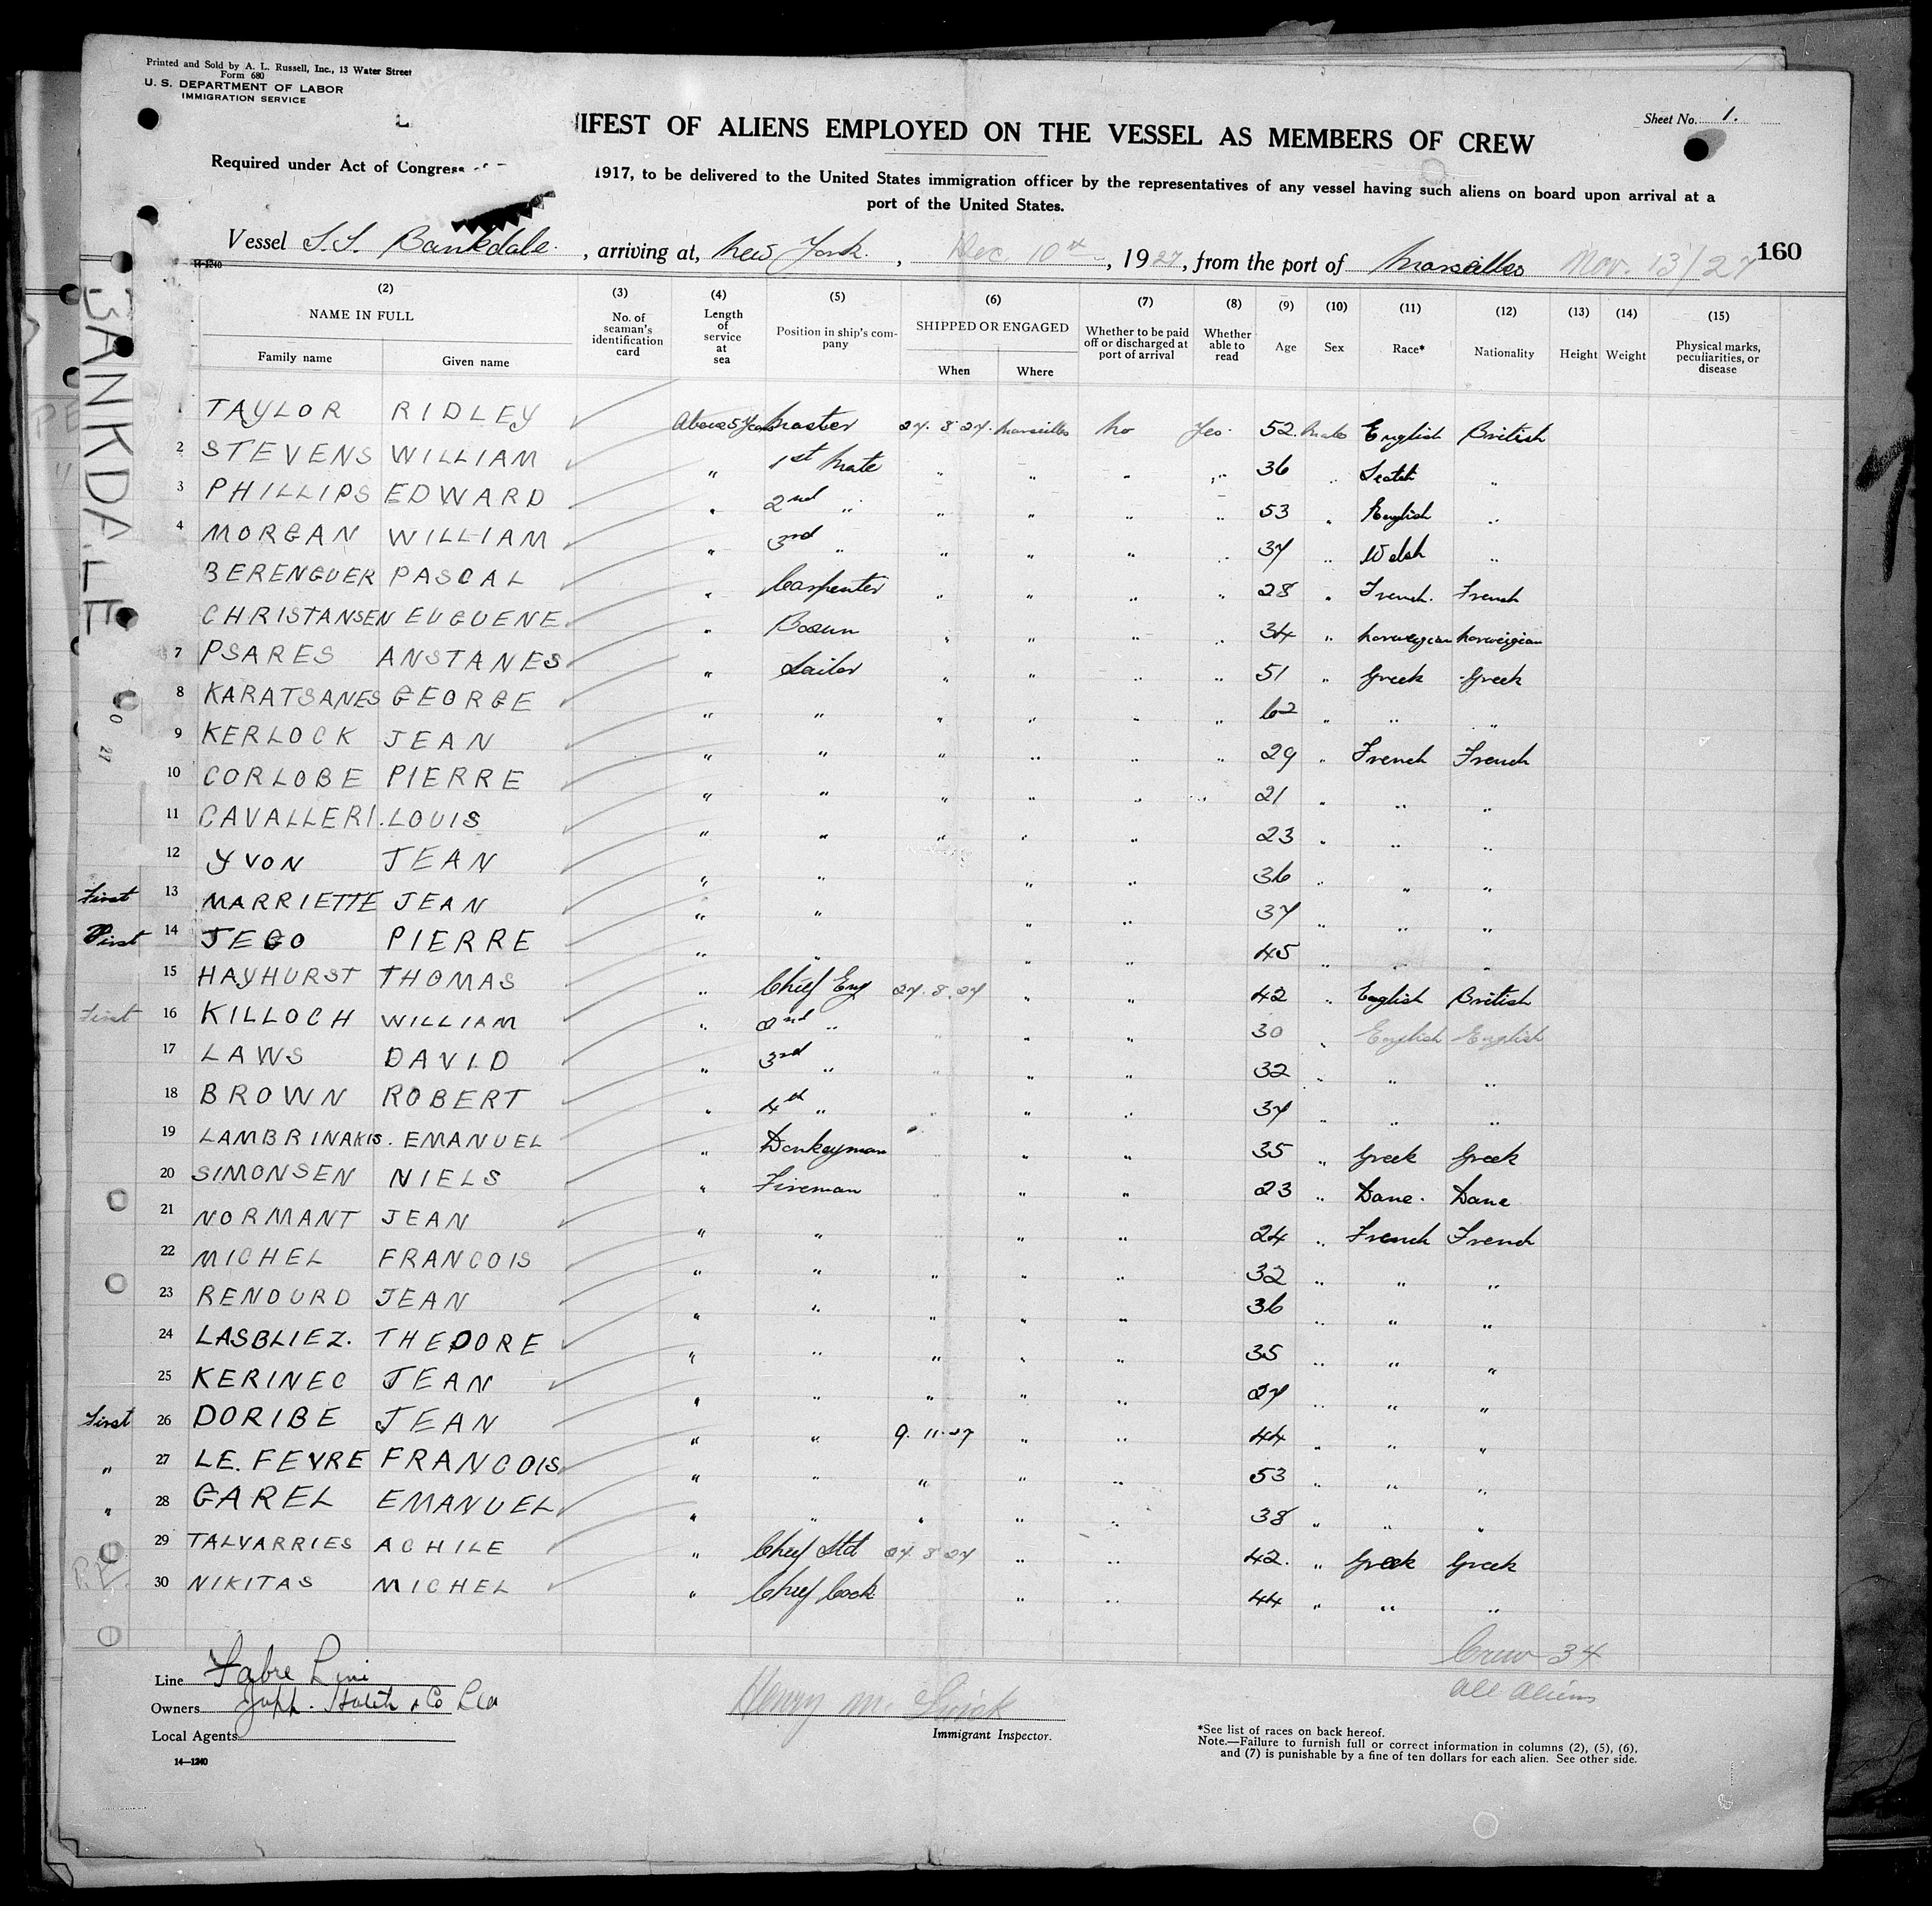 Printed and Sold by A. L. Russell, Inc., 13 Water Street
Form 680
U. S. DEPARTMENT OF LABOR
IMMIGRATION SERVICE
Sheet No. 1.
IFEST OF ALIENS EMPLOYED ON THE VESSEL AS MEMBERS OF CREW
Required under Act of Congress 1917, to be delivered to the United States immigration officer by the representatives of any vessel having such aliens on board upon arrival at a
port of the United States.
Vessel S.S. Bankdale, arriving at, New York, Dec 10th, 1927, from the port of Marseilles Nov. 13/27 160
14-1240
BANKDALE
(2) (3) (4) (5) (6) (7) (8) (9) (10) (11) (12) (13) (14) (15)
NAME IN FULL No. of seaman's identification card Length of service at sea Position in ship's company SHIPPED OR ENGAGED Whether to be paid off or discharged at port of arrival Whether able to read Age Sex Race* Nationality Height Weight Physical marks, peculiarities, or disease
Family name Given name When Where
1 TAYLOR RIDLEY Above 5 Years Master 27.8.27. Marseilles No Yes 52. Male English British
2 STEVENS WILLIAM " 1st Mate " " " " 36 " Scotch "
3 PHILLIPS EDWARD " 2nd " " " " " 53 " English "
4 MORGAN WILLIAM " 3rd " " " " " 37 " Welsh "
BERENGUER PASCAL " Carpenter " " " " 28 " French. French
CHRISTANSEN EUGUENE. " Bosun " " " " 34 " Norwegian Norweigian
7 PSARES ANSTANES " Sailor " " " " 51 " Greek Greek
8 KARATSANES GEORGE " " " " " " 62 " " "
9 KERLOCK JEAN " " " " " " 29 " French French
10 CORLOBE PIERRE " " " " " " 21 " " "
11 CAVALLERI. LOUIS " " " " " 23 " " "
12 YVON JEAN " " " " 36 " " "
First 13 MARRIETTE JEAN " " " " 37 " " "
First 14 JEGO PIERRE " " " " 45 " " "
15 HAYHURST THOMAS " Chief Eng 27.8.27 " " 42 " English British
First 16 KILLOCH WILLIAM " 2nd " " " " 30 " English English
17 LAWS DAVID " 3rd " " " " 32 " " "
18 BROWN ROBERT " 4th " " " " 37 " " "
19 LAMBRINAKIS. EMANUEL " Donkeyman " " " 35 " Greek Greek
20 SIMONSEN NIELS " Fireman " " " 23 " Dane. Dane
21 NORMANT JEAN " " " " " 24 " French French
22 MICHEL FRANCOIS " " " " " 32 " " "
23 RENOURD JEAN " " " " " 36 " " "
24 LASBLIEZ. THEDORE " " " " " 35 " " "
25 KERINEC JEAN " " " " " 27 " " "
First 26 DORIBE JEAN " " 9.11.27 " " 44 " " "
" 27 LE. FEVRE FRANCOIS " " " " " 53 " " "
" 28 GAREL EMANUEL " " " " " 38 " " "
29 TALVARRIES ACHILE " Chief Std 27.8.27 " " 42. " Greek Greek
30 NIKITAS MICHEL " Chief Cook " " 44 " " "
Crew 34
all aliens
Line Fabre Line
Owners
Local Agents
14—1240
Henry M.
Immigrant Inspector.
*See list of races on back hereof.
Note.—Failure to furnish full or correct information in columns (2), (5), (6),
and (7) is punishable by a fine of ten dollars for each alien. See other side.